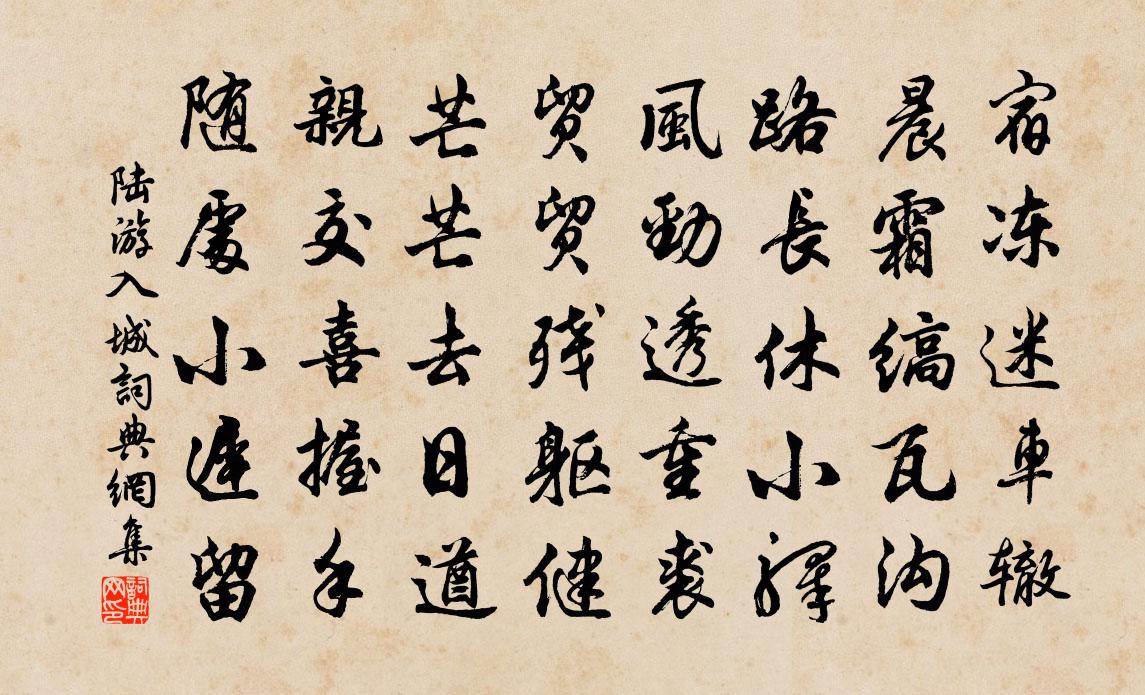 宿冻迷車辙
晨霜缟瓦沟
路長休小驛
風勁透重裘
贸贸残軀健
芒芒去日遒
親交喜握手
随處小遲留
陆游入城詞典網集
詞典网印